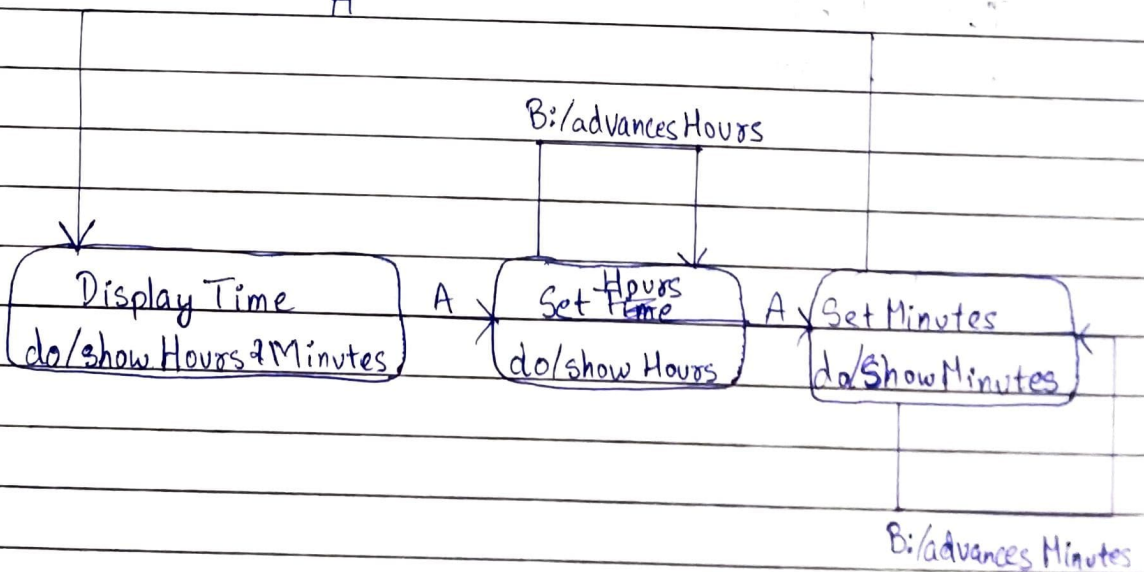 A
B:/advances Hours
Display Time
do/show Hours & Minutes
A
Set Hours
Time
do/show Hours
A
Set Minutes
do/Show Minutes
B:/advances Minutes